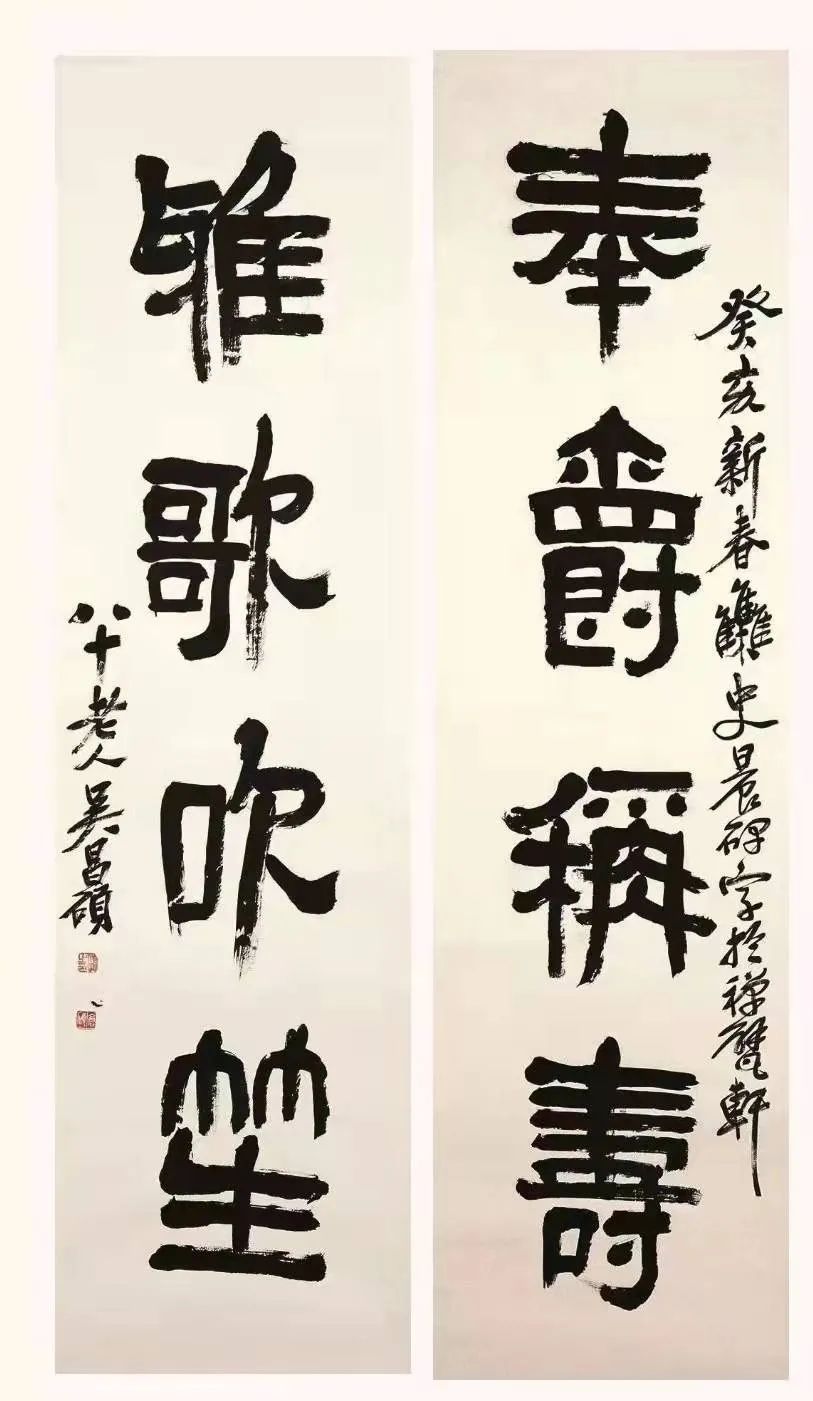 奉爵稱壽
癸亥新春集史晨碑字於禪甓軒
雅歌吹笙
八十老人吳昌碩